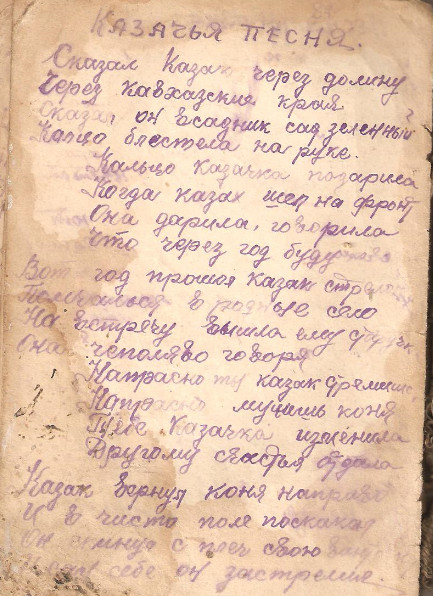 КАЗАЧЬЯ ПЕСНЯ.
Сказал Казак через долину
Через Кавказские края
Сказал он всадник сад зеленный
Кальцо блестела на руке.
Кальцо казачка подарила
Когда казак шел на фронт
Она дарила, говорила
Что через год буду
Вот год прошол казак
в родные село
На встречу вышла ему
Она говоря
Напрасно ты казак стремишс
Напрасно мучишь коня
Тебе Казачка изменила
Другому счастья отдала
Казак вернул коня направо
И в чисто поле поскакал
Он с плеч свою
себе он застрелил.